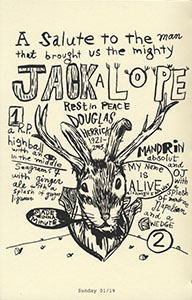 A Salute to the man
that brought us the mighty
JACKALOPE
Rest in Peace
DOUGLAS
HERRICK
1921-
2003
1
a R.P.
highball
with
in the middle
Seagrams 7
with ginger
ale with a
splash of
liqueur
MANDRIN
absolut
and
OJ
with
splash
of
and a
WEDGE
2
MY NAME
IS
ALIVE
Sunday 01/19